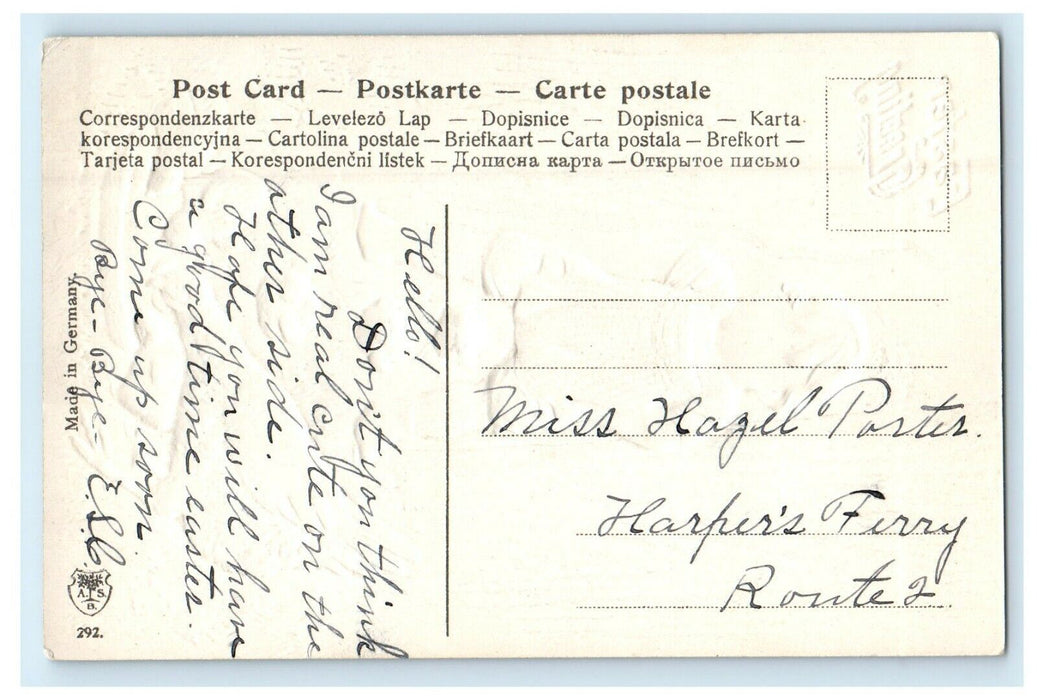 Post Card — Postkarte — Carte postale
Correspondenzkarte — Levelező Lap — Dopisnice — Dopisnica — Karta
korespondencyjna — Cartolina postale — Briefkaart — Carta postala — Brefkort —
Tarjeta postal — Korespondenční lístek — Дописна карта — Открытое письмо
Hello!
Don't you think
I am real cute on the
other side.
Hope you will have
a good time easter.
Come up soon.
Bye-Bye- E.S.C.
Miss Hazel Porter.
Harper's Ferry
Route 2
Made in Germany.
A. S.
B.
292.